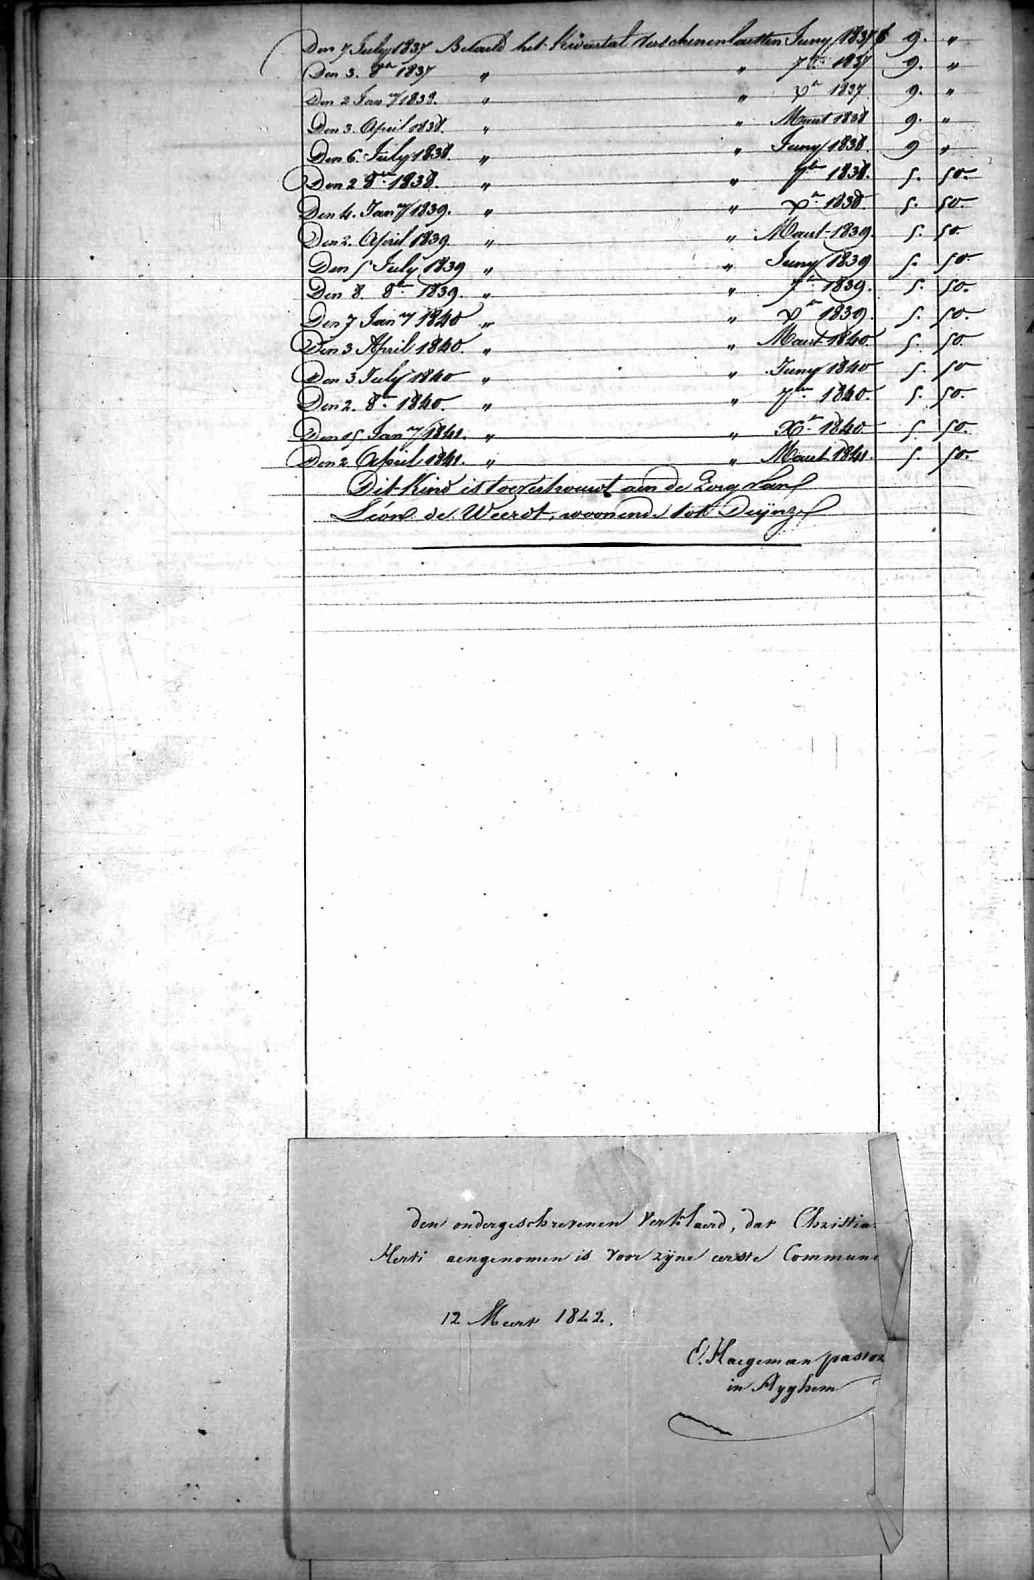 Den 7 July 1837 Betaeld het kwartal verschenen laetsten Juny 1837 f 9. "
Den 3. 8re 1837 " " 7bre 1837 9. "
Den 2 Jany 1838. " " Xre 1837 9. "
Den 3. April 1838. " " Maert 1838 9. "
Den 6. July 1838. " " Juny 1838. 9 "
Den 2 8re 1838. " " 7bre 1838. 5. 50.
Den 4. Jany 1839. " " Xre 1838. 5. 50.
Den 2. April 1839. " " Maert 1839. 5. 50
Den 5 July 1839 " " Juny 1839 5. 50
Den 8. 8re 1839. " " 7re 1839. 5. 50.
Den 7 Jany 1840 " " Xre 1839. 5. 50.
Den 3 April 1840. " " Maert 1840 5. 50
Den 3 July 1840 " " Juny 1840 5. 50
Den 2. 8re 1840. " " 7re 1840. 5. 50.
Den 15 Jany 1841. " " Xre 1840 5. 50.
Den 2 April 1841. " " Maert 1841. 5. 50.
Dit Kind is toevertrouwt aen de Zorg van
Léon de Weerdt, woonende tot Duÿnze
den ondergeschrevenen verklaerd, dat Christia
Herti aengenomen is voor zijne eerste Commune
12 Meert 1842.
E. Haegeman pastor
in Ayghem